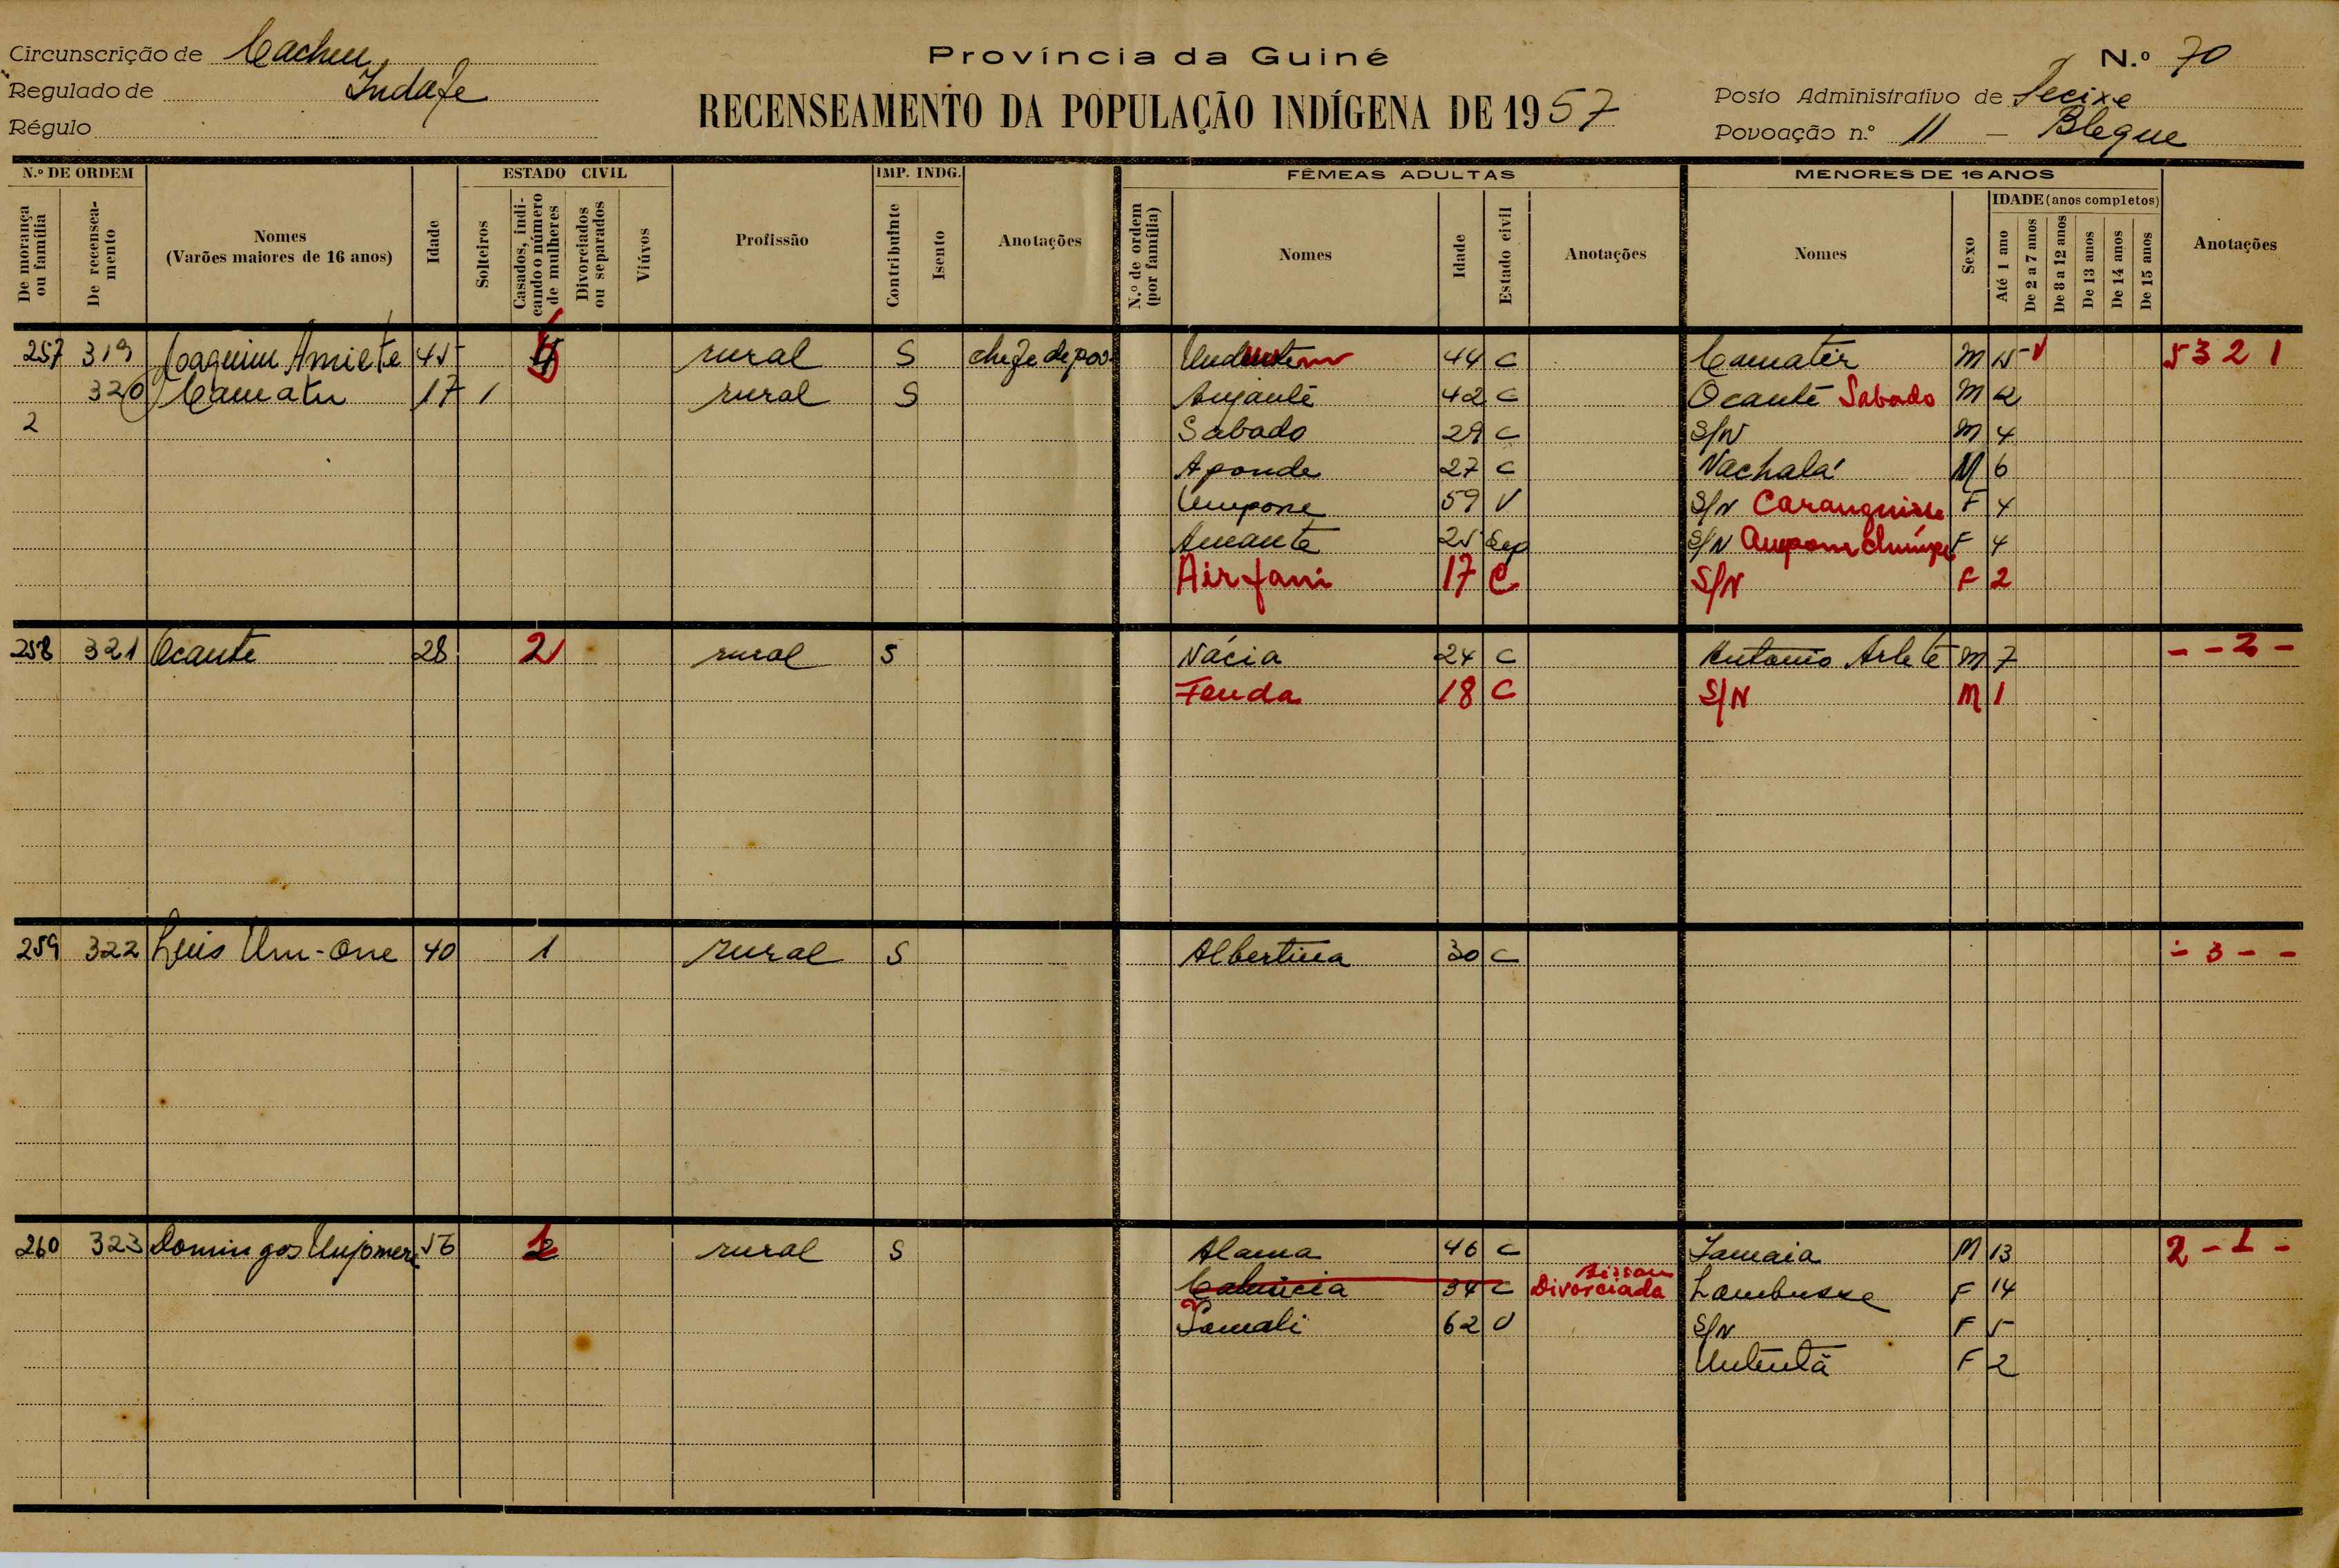 Circunscrição de Cacheu
Regulado de Indafe
Régulo
Província da Guiné
RECENSEAMENTO DA POPULAÇÃO INDÍGENA DE 1957
N.º 70
Posto Administrativo de Tecixe
Povoação n.º 11 - Bleque
N.º DE ORDEM
De morança ou família
De recenseamento
Nomes
(Varões maiores de 16 anos)
Idade
ESTADO CIVIL
Solteiros
Casados, indicando o número de mulheres
Divorciados ou separados
Viúvos
Profissão
IMP. INDG.
Contribuinte
Isento
Anotações
FÊMEAS ADULTAS
N.º de ordem (por família)
Nomes
Idade
Estado civil
Anotações
MENORES DE 16 ANOS
Nomes
Sexo
IDADE (anos completos)
Até 1 ano
De 2 a 7 anos
De 8 a 12 anos
De 13 anos
De 14 anos
De 15 anos
Anotações
257 319 Joaquim Amiete 45 rural S chefe de pov. 44 C Camatir M 15 5 3 2 1
320 Camatu 17 1 rural S Anjantê 42 C Ocantê Sabado M 2
2 Sabado 29 C S/N M 4
Aponde 27 C Nachalá M 6
Umpone 59 V S/N F 4
Amante 25 Sep S/N F 4
Airfani 17 C S/N F 2
258 321 Ocante 28 2 rural S Nácia 24 C Antonio Arlete M 7 - - 2 -
Fenda 18 C S/N M 1
259 322 Luis Um-one 40 1 rural S Albertina 30 C - 3 - -
260 323 Domingos 56 rural S Alama 46 C Jamaia M 13 2 - 1 -
34 C Bissau Divorciada Lambusse F 14
62 V S/N F 5
Untentã F 2